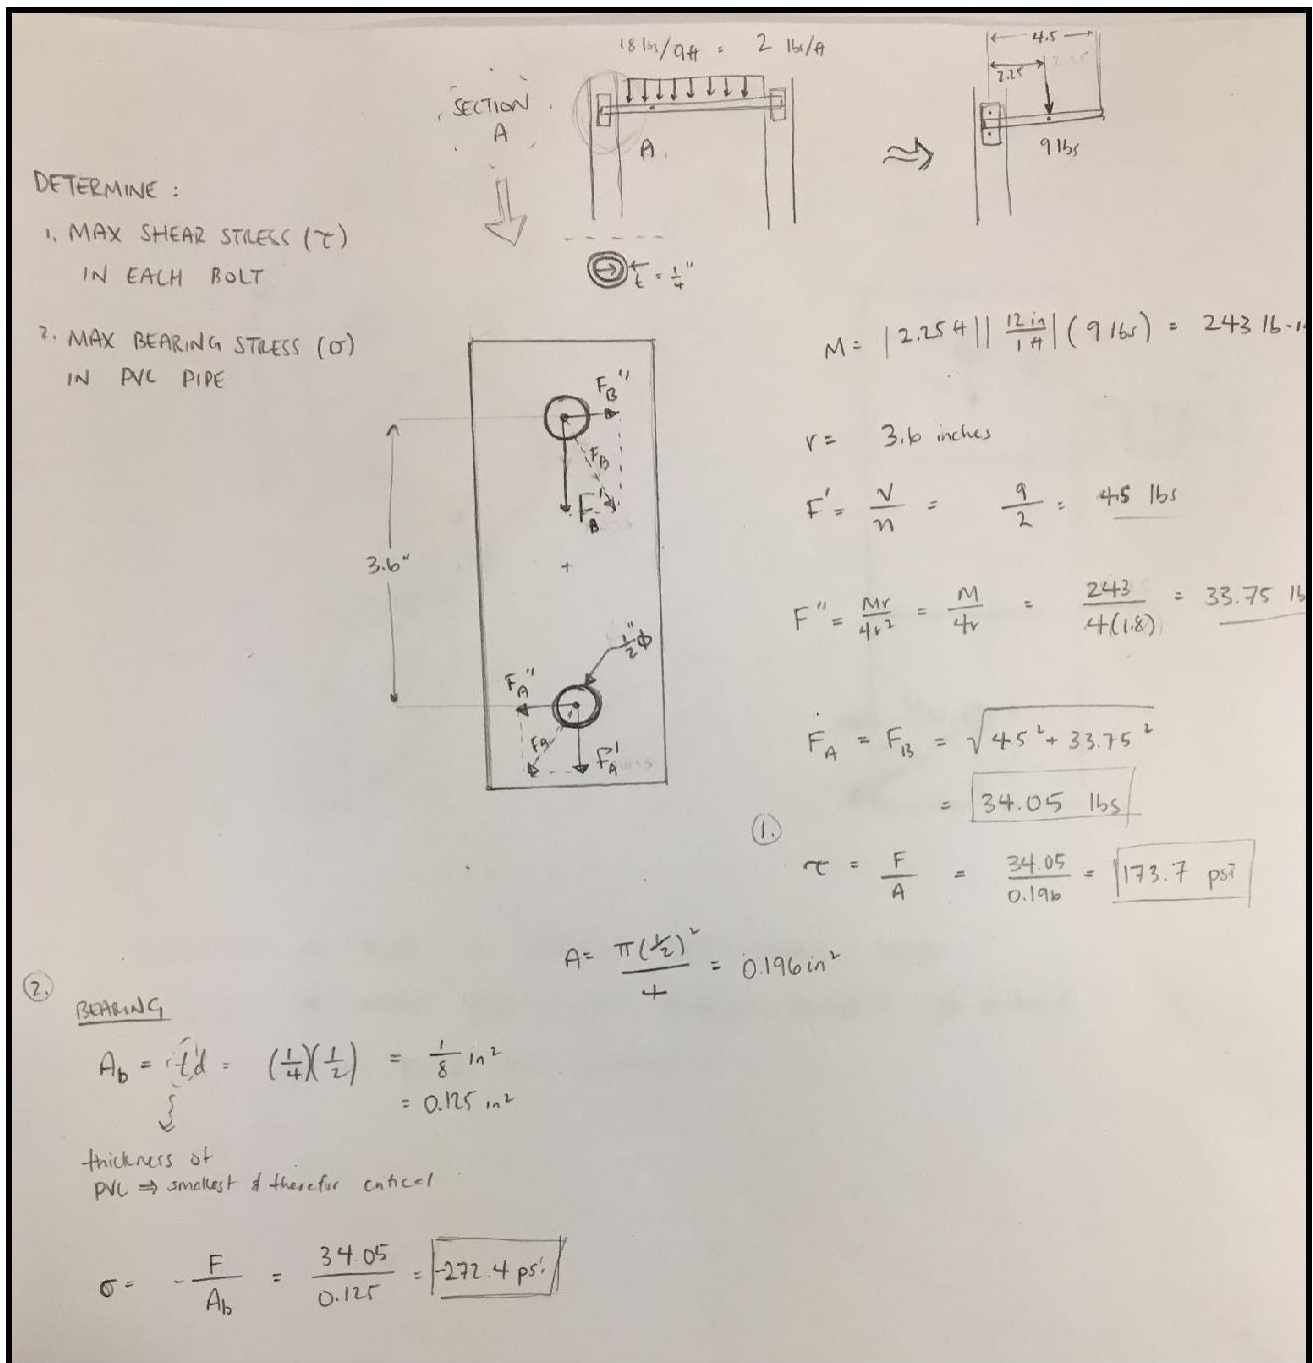 18 lbs/9ft = 2 lbs/ft
SECTION
A
A
4.5
2.25
9 lbs
DETERMINE :
1. MAX SHEAR STRESS (τ)
IN EACH BOLT
t = 1/4"
2. MAX BEARING STRESS (σ)
IN PVC PIPE
M = |2.25 ft||12 in/1 ft|(9 lbs) = 243 lb·in
F_B''
F_B
F_B'
r = 3.6 inches
F' = V/n = 9/2 = 4.5 lbs
3.6"
+
F'' = Mr/4r² = M/4r = 243/4(1.8) = 33.75 lb
1/2" ϕ
F_A''
F_A'
F_A = F_B = √4.5² + 33.75²
= 34.05 lbs
1.
τ = F/A = 34.05/0.196 = 173.7 psi
A = π(1/2)²/4 = 0.196 in²
2.
BEARING
A_b = td = (1/4)(1/2) = 1/8 in²
= 0.125 in²
thickness of
PVC ⇒ smallest & therefor critical
σ = -F/A_b = 34.05/0.125 = -272.4 psi